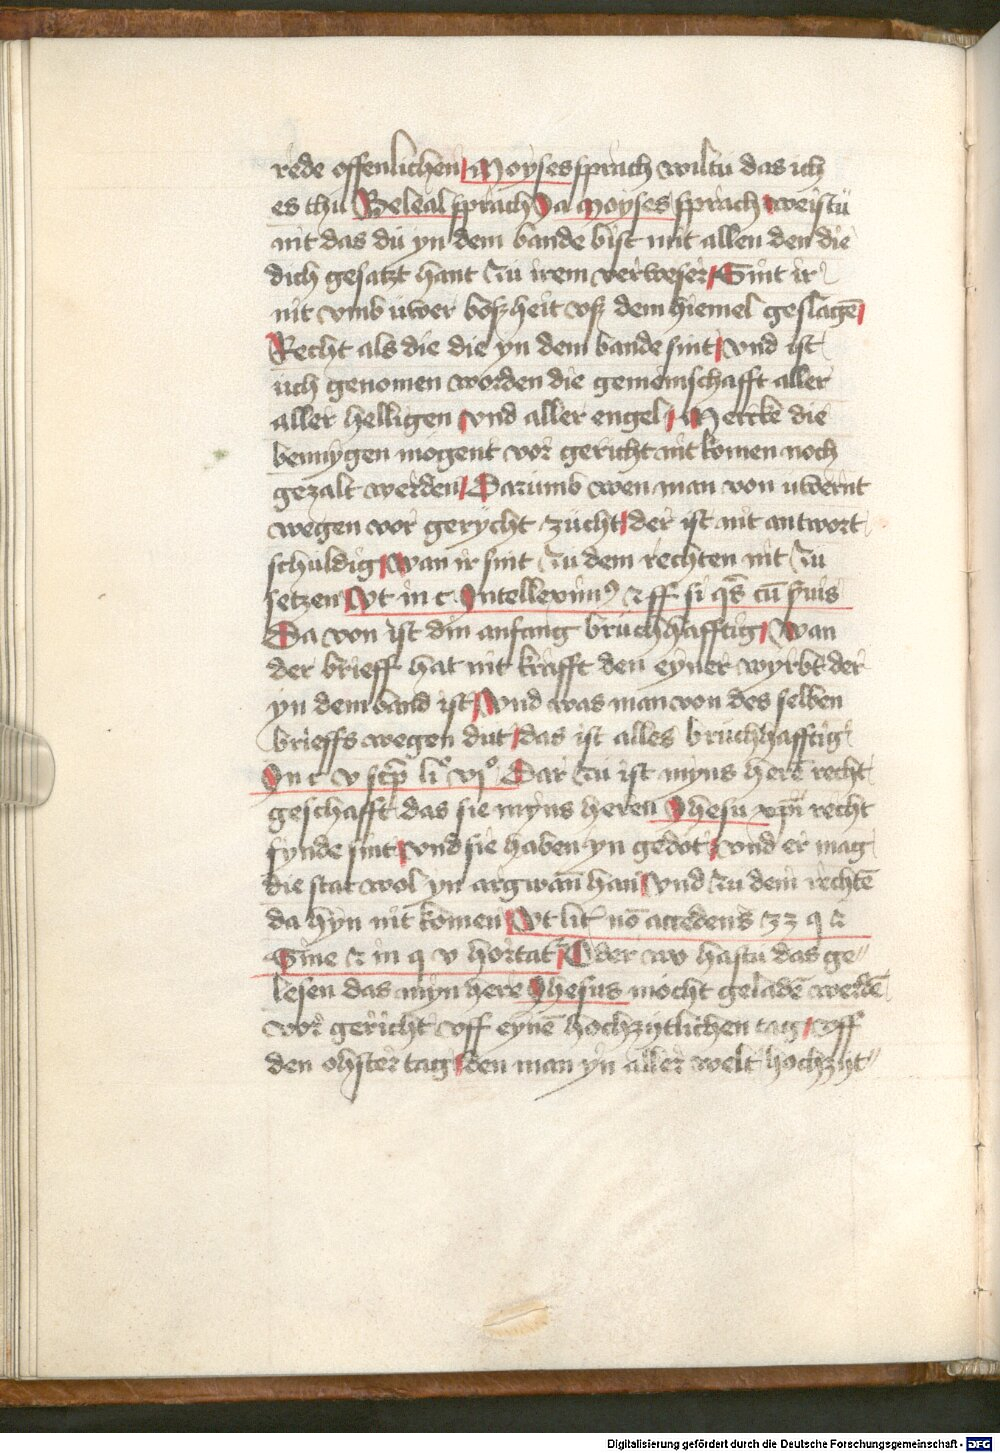 rede offenlichen / Moyses sprach wiltu das ich
es thu Beleal sprach Ja Moyses sprach weistu
nit das du yn dem bande bist mit allen den die
dich gesatzt hant zu irem verweser / Sint ir
nit vmb uwer boszheit vsz dem hiemel geslagē /
Recht als die die yn dem bande sint / vnd ist
uch genomen worden die gemeinschafft aller
aller helligen / vnd aller engel / Mercke die
bennygen mogent vor gericht nit komen noch
gezalt werden / Darumb wen man von uwernt
wegen vor gerycht zucht / der ist nit antwort
schuldig / Wan ir sint zu dem rechten nit zu
setzen / Vt in c. Intelleximꝰ ⁊ ff si qs̄ cū
Da von ist din anfang bruchhafftig / Wan
der brieff hat nit krafft den eyner wyrbt der
yn dem band ist / Vnd was man von des selben
brieffs wegen dut / das ist alles bruchhafftig
In c v scp̄ li° vj° Dar zu ist myns herē recht
geschafft das sie myns heren Jhesu xp̄i recht
fynde sint / vnd sie haben yn gedot / vnd er mag
die stat wol yn argwan han / vnd zu dem rechtē
da hyn nit komen / Vt lit nō accedens 33 q 2
Sine ⁊ in q v hortat / Oder wo hastu das ge=
lesen das myn here Jhesus mocht geladē werdē
vor gericht vff eynē hochzytlichen tag / vff
den ohster tag / den man yn aller welt hochzyt=
Digitalisierung gefördert durch die Deutsche Forschungsgemeinschaft - DFG